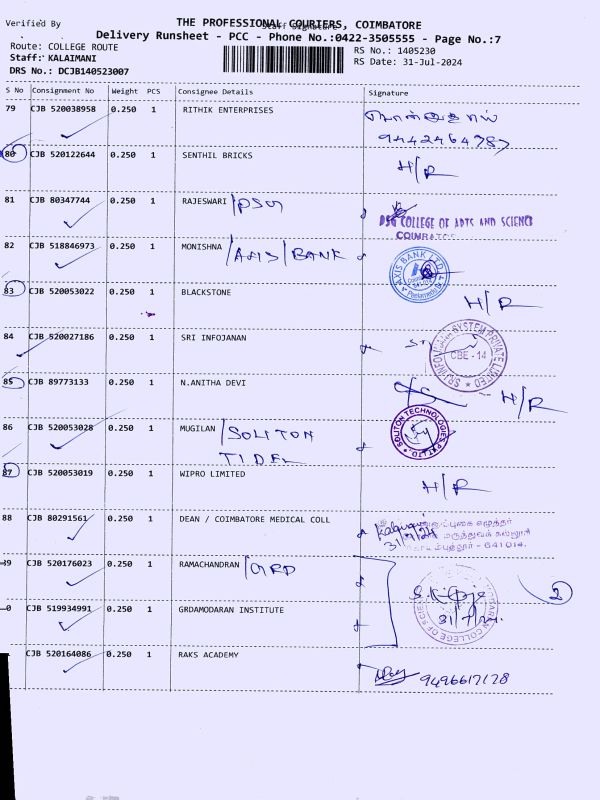 Verified By
THE PROFESSIONAL COURIERS, COIMBATORE
Staff Signature
Delivery Runsheet - PCC - Phone No.:0422-3505555 - Page No.:7
Route: COLLEGE ROUTE
RS No.: 1405230
Staff: KALAIMANI
RS Date: 31-Jul-2024
DRS No.: DCJB140523007
S No Consignment No Weight PCS Consignee Details Signature
79 CJB 520038958 0.250 1 RITHIK ENTERPRISES
9442464787
80 CJB 520122644 0.250 1 SENTHIL BRICKS H/R
81 CJB 80347744 0.250 1 RAJESWARI /PSG
PSG COLLEGE OF ARTS AND SCIENCE
COIMBATORE
82 CJB 518846973 0.250 1 MONISHNA /AXIS/BANK
AXIS BANK LTD.
83 CJB 520053022 0.250 1 BLACKSTONE H/R
84 CJB 520027186 0.250 1 SRI INFOJANAN
SYSTEM PRIVATE LIMITED
CBE - 14
85 CJB 89773133 0.250 1 N.ANITHA DEVI H/R
86 CJB 520053028 0.250 1 MUGILAN /SOLITON
TIDEL
SOLITON TECHNOLOGIES PVT. LTD.
87 CJB 520053019 0.250 1 WIPRO LIMITED H/R
88 CJB 80291561 0.250 1 DEAN / COIMBATORE MEDICAL COLL
31/7/24
641 014.
89 CJB 520176023 0.250 1 RAMACHANDRAN /GRD
0 CJB 519934991 0.250 1 GRDAMODARAN INSTITUTE
31/7/24
2
CJB 520164086 0.250 1 RAKS ACADEMY
9496617178